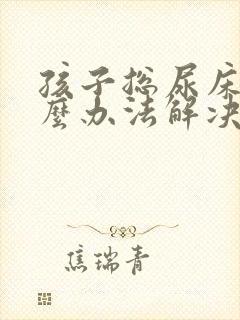 孩子总尿床
麼办法解决
焦瑞青